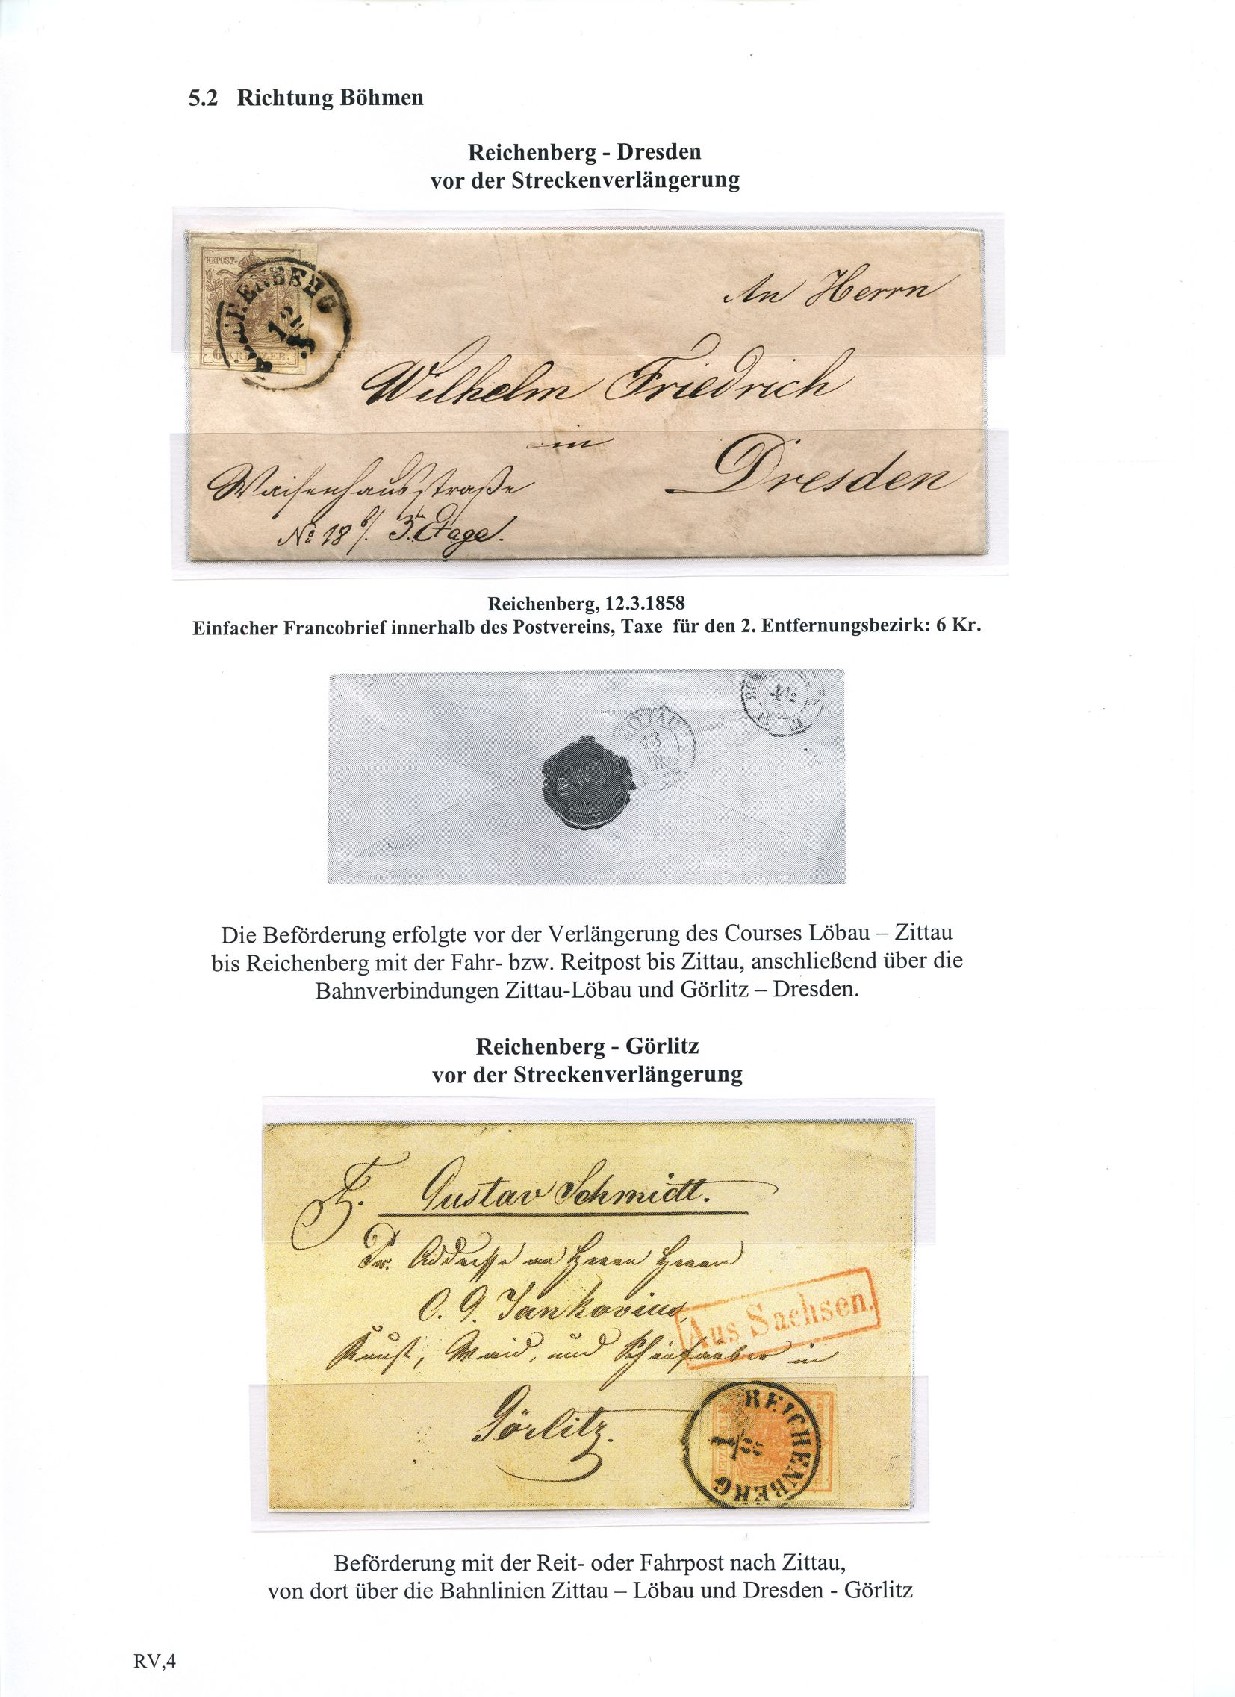 5.2 Richtung Böhmen
Reichenberg - Dresden
vor der Streckenverlängerung
6 KREUZER
An Herrn
Wilhelm Friedrich
in
Dresden
Waisenhausstraße
No 18 / 3. Etage.
Reichenberg, 12.3.1858
Einfacher Francobrief innerhalb des Postvereins, Taxe für den 2. Entfernungsbezirk: 6 Kr.
ZITTAU
Die Beförderung erfolgte vor der Verlängerung des Courses Löbau – Zittau
bis Reichenberg mit der Fahr- bzw. Reitpost bis Zittau, anschließend über die
Bahnverbindungen Zittau-Löbau und Görlitz – Dresden.
Reichenberg - Görlitz
vor der Streckenverlängerung
Gustav Schmidt.
Pr. Addresse an Herrn Herrn
Jankovius,
Kunst, Waid, und Schönfärber in
Aus Sachsen.
Görlitz.
REICHENBERG
Beförderung mit der Reit- oder Fahrpost nach Zittau,
von dort über die Bahnlinien Zittau – Löbau und Dresden - Görlitz
RV,4